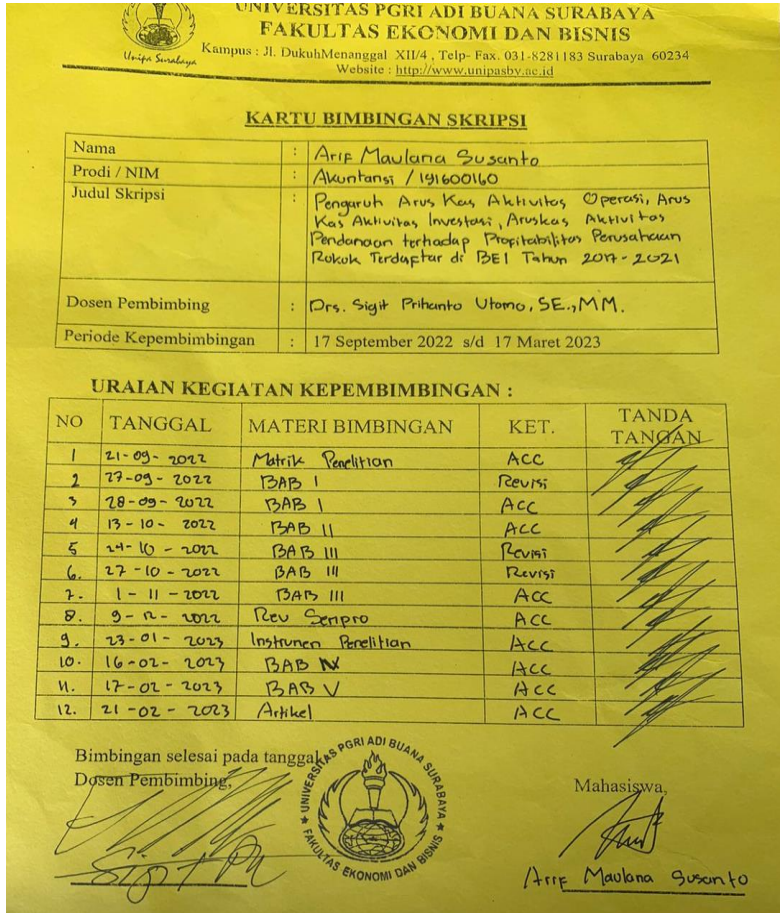 UNIVERSITAS PGRI ADI BUANA SURABAYA
FAKULTAS EKONOMI DAN BISNIS
Kampus : Jl. DukuhMenanggal XII/4 , Telp- Fax. 031-8281183 Surabaya 60234
Website : http://www.unipasby.ac.id
Unipa Surabaya
KARTU BIMBINGAN SKRIPSI
Nama : Arif Maulana Susanto
Prodi / NIM : Akuntansi / 191600160
Judul Skripsi : Pengaruh Arus Kas Aktivitas Operasi, Arus
Kas Aktivitas Investasi, Aruskas Aktivitas
Pendanaan terhadap Profitabilitas Perusahaan
Rokok Terdaftar di BEI Tahun 2017-2021
Dosen Pembimbing : Drs. Sigit Prihanto Utomo, SE.,MM.
Periode Kepembimbingan : 17 September 2022 s/d 17 Maret 2023
URAIAN KEGIATAN KEPEMBIMBINGAN :
NO TANGGAL MATERI BIMBINGAN KET. TANDA TANGAN
1 21-09-2022 Matrik Penelitian ACC
2 27-09-2022 BAB I Revisi
3 28-09-2022 BAB I ACC
4 13-10-2022 BAB II ACC
5 24-10-2022 BAB III Revisi
6. 27-10-2022 BAB III Revisi
7. 1-11-2022 BAB III ACC
8. 9-12-2022 Rev Sempro ACC
9. 23-01-2023 Instrumen Penelitian ACC
10. 16-02-2023 BAB IV ACC
11. 17-02-2023 BAB V ACC
12. 21-02-2023 Artikel ACC
Bimbingan selesai pada tanggal
Dosen Pembimbing,
UNIVERSITAS PGRI ADI BUANA SURABAYA
FAKULTAS EKONOMI DAN BISNIS
Mahasiswa,
Arif Maulana Susanto